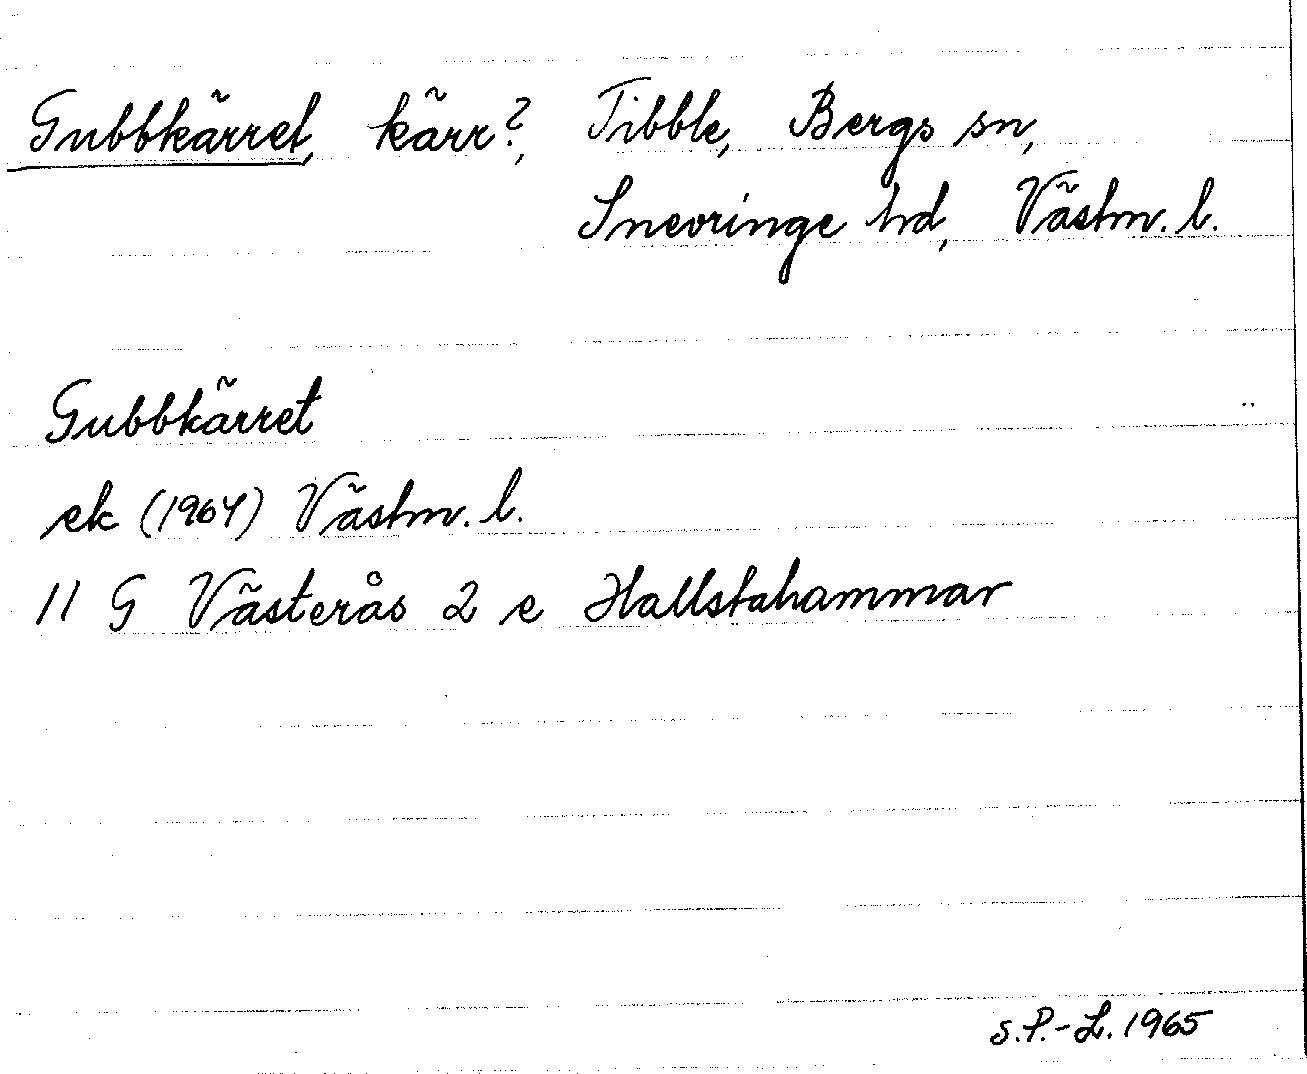 Gubbkärret, kärr?, Tibble, Bergs sn,
Snevringe hd, Västm. l.
Gubbkärret
ek (1964) Västm. l.
11 G Västerås 2 e Hallstahammar
S.P.-L. 1965